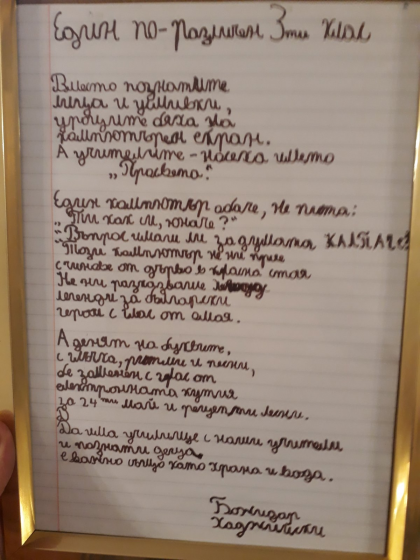 Един по-различен 3ти клас
Вместо познатите
лица и усмивки,
уроците бяха на
компютърен екран.
А учителите - насека
„Просвета".
Един компютър обаче, не пита:
„Ти как си, юначе?"
"Въпрос имали ли за думата КАЛПАЧЕ
Този компютър не ни
с чинове от дърво в класна стая
Не ни разказваше
легенди за български
герои с глас от омая.
А денят на буквите,
с глъчка, ритми и песни,
бе заменен с глас от
електронната кутия
за 24ти май и рецепти лесни.
Д
Да има училище с наши учители
и познати деца
е важно също като храна и вода.
Божидар
Хаджийски